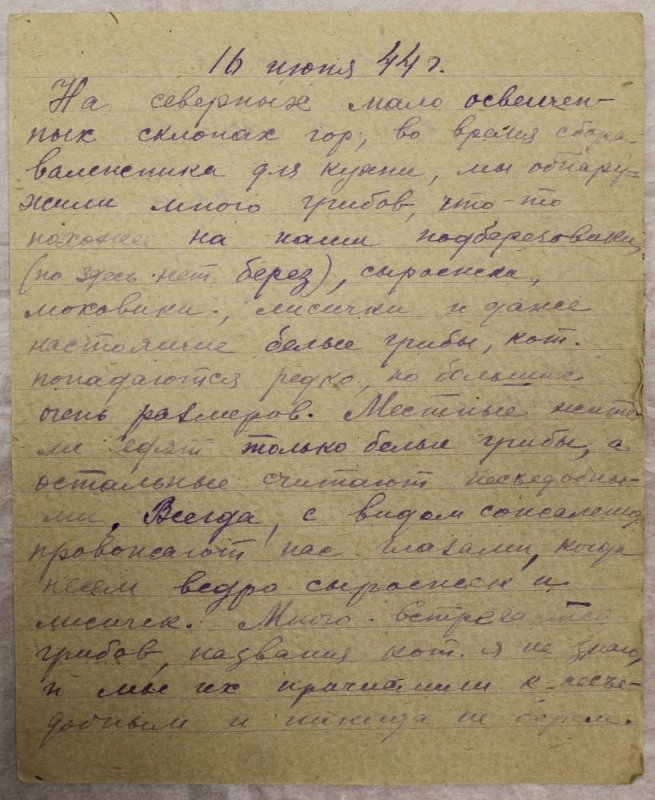 16 июня 44 г.
На северных мало освещен-
ных склонах гор, во время сбора
валежника для кухни, мы обнару-
жили много грибов, что-то
похожее на наши подберезовики,
(но здесь нет берез), сыроежки,
моховики, лисички и даже
настоящие белые грибы, кот.
попадаются редко, но больших
очень размеров. Местные жите-
ли едят только белые грибы, а
остальные считают несъедобны-
ми. Всегда, с видом сожаления
провожают нас глазами, когда
несем ведро сыроежек и
лисичек. Много встречается
грибов, названия кот. я не знаю,
и мы их причислили к несъе-
добным и никогда не берем.